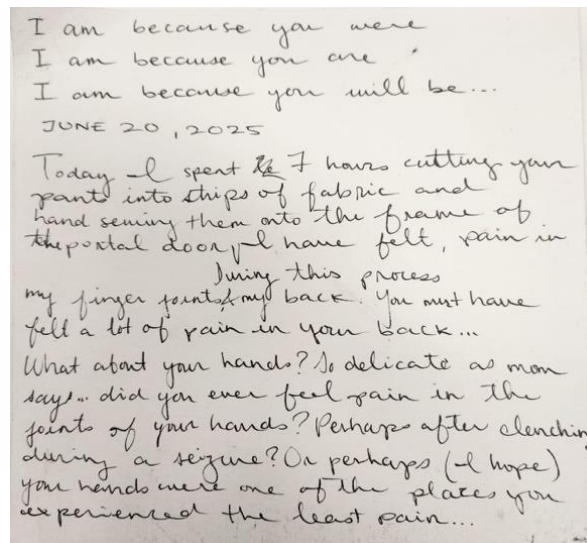 I am because you were
I am because you are
I am because you will be...
JUNE 20, 2025
Today I spent 7 hours cutting your
pants into strips of fabric and
hand sewing them onto the frame of
the portal door, I have felt, pain in
During this process
my finger joints & my back. You must have
felt a lot of pain in your back...
What about your hands? So delicate as mom
says... did you ever feel pain in the
joints of your hands? Perhaps after clenching
during a seizure? Or perhaps (I hope)
your hands were one of the places you
experienced the least pain...